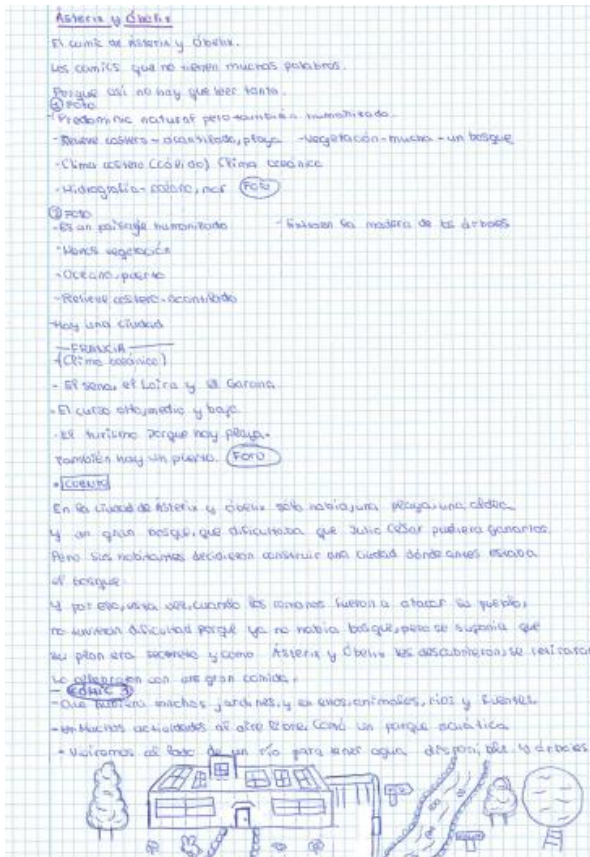 Ásterix y Óbelix
El comic de Ásterix y Óbelix.
Los comics que no tienen muchas palabras.
Porque así no hay que leer tanto.
① FOTO
-Predominio natural pero también humanizado.
-Relieve costero - acantilado, playa -Vegetación-mucha-un bosque
-Clima costero (cálido) Clima oceánico
-Hidrografía-océano, mar FOTO
② FOTO
-Es un paisaje humanizado -Extraen la madera de los árboles
-Menos vegetación
-Océano, puerto
-Relieve costero-acantilado
-Hay una ciudad
-FRANCIA-
(Clima oceánico)
- El sena, el Loira y el Garona
-El curso alto, medio y bajo
-El turismo porque hay playa.
También hay un puerto. FOTO
CUENTO
En la ciudad de Ásterix y óbelix solo había, una playa, una aldea
y un gran bosque, que dificultaba que Julio César pudiera ganarlos.
Pero sus habitantes decidieron construir una ciudad dónde antes estaba
el bosque.
Y por eso, esta vez, cuando los romanos fueron a atacar su pueblo,
no tuvieron dificultad porque ya no había bosque, pero se suponía que
su plan era secreto y como Ásterix y Óbelix les descubrieron, se retiraron
Lo celebraron con una gran comida.
- COMIC 3
-Que hubiera muchos jardines, y en ellos, animales, ríos y fuentes
- Muchas actividades al aire libre como un parque acuático
- Viviramos al lado de un río para tener agua disponible. Y árboles